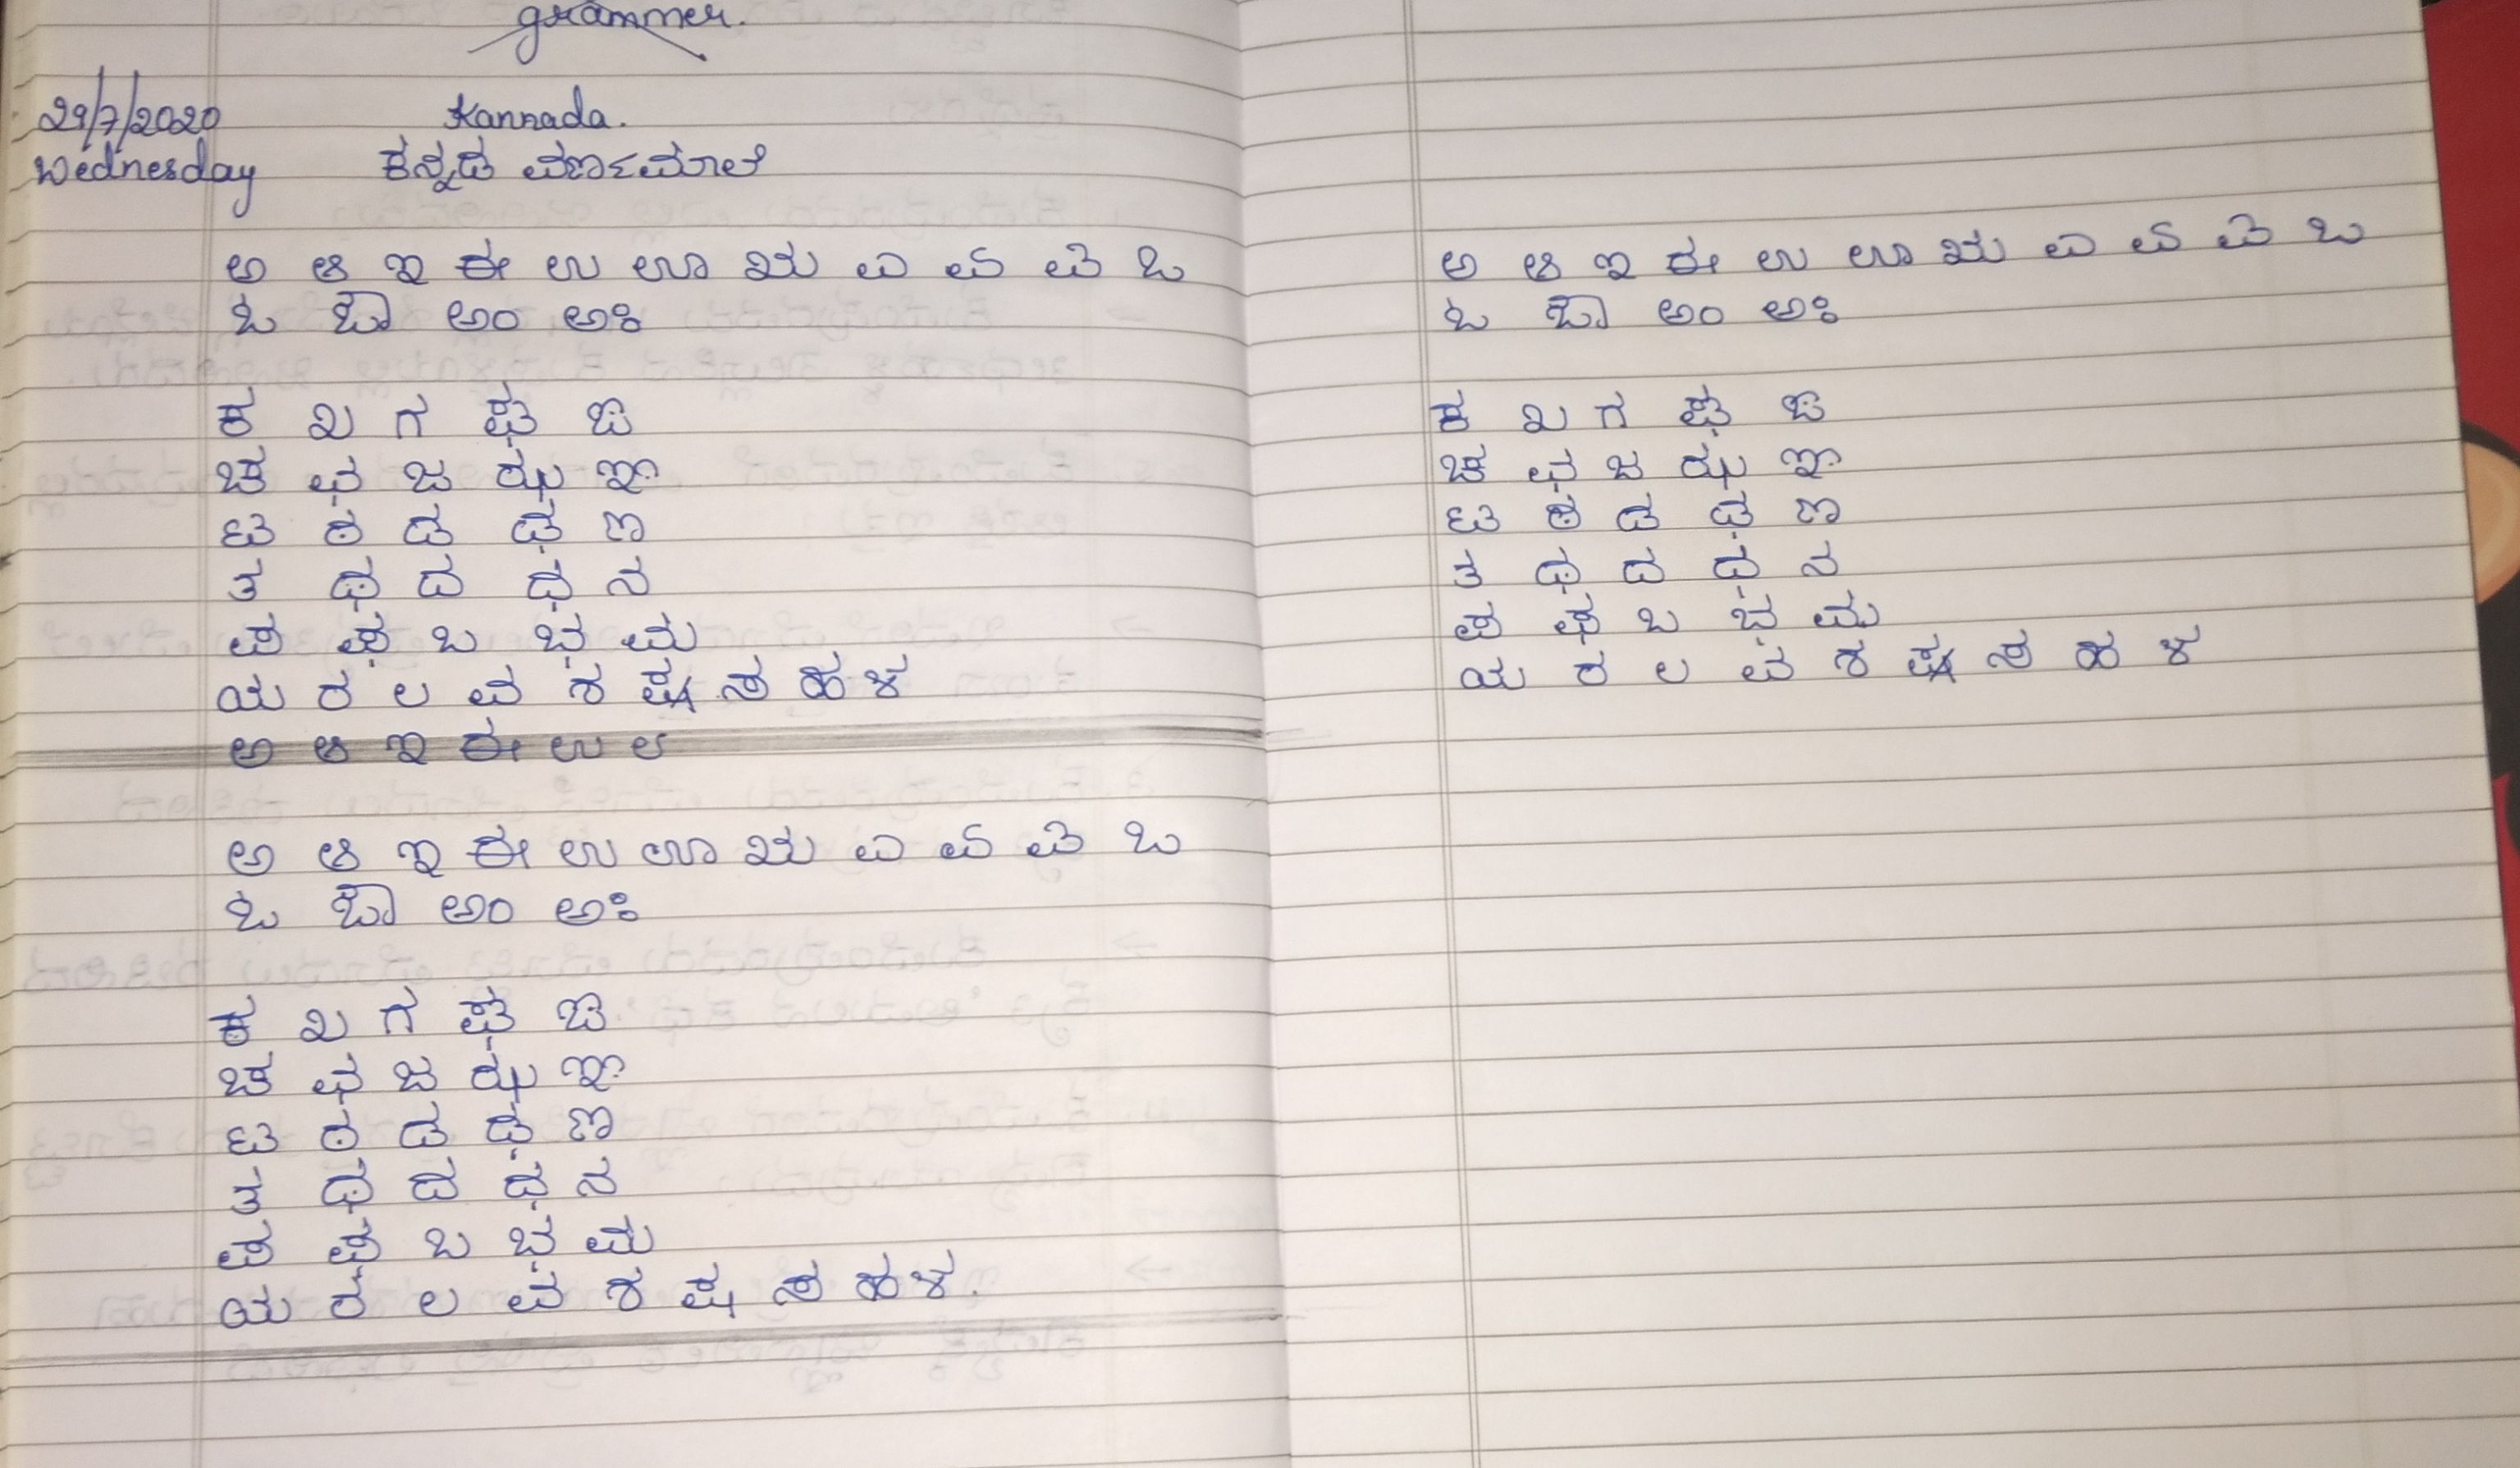 grammer.
29/7/2020 Kannada.
Wednesday ಕನ್ನಡ ವರ್ಣಮಾಲೆ
ಅ ಆ ಇ ಈ ಉ ಊ ಋ ಎ ಏ ಐ ಒ
ಓ ಔ ಅಂ ಅಃ
ಕ ಖ ಗ ಘ ಙ
ಚ ಛ ಜ ಝ ಞ
ಟ ಠ ಡ ಢ ಣ
ತ ಥ ದ ಧ ನ
ಪ ಫ ಬ ಭ ಮ
ಯ ರ ಲ ವ ಶ ಷ ಸ ಹ ಳ
ಅ ಆ ಇ ಈ ಉ ಆ
ಅ ಆ ಇ ಈ ಉ ಊ ಋ ಎ ಏ ಐ ಒ
ಓ ಔ ಅಂ ಅಃ
ಕ ಖ ಗ ಘ ಙ
ಚ ಛ ಜ ಝ ಞ
ಟ ಠ ಡ ಢ ಣ
ತ ಥ ದ ಧ ನ
ಪ ಫ ಬ ಭ ಮ
ಯ ರ ಲ ವ ಶ ಷ ಸ ಹ ಳ.
ಅ ಆ ಇ ಈ ಉ ಊ ಋ ಎ ಏ ಐ ಒ
ಓ ಔ ಅಂ ಅಃ
ಕ ಖ ಗ ಘ ಙ
ಚ ಛ ಜ ಝ ಞ
ಟ ಠ ಡ ಢ ಣ
ತ ಥ ದ ಧ ನ
ಪ ಫ ಬ ಭ ಮ
ಯ ರ ಲ ವ ಶ ಷ ಸ ಹ ಳ